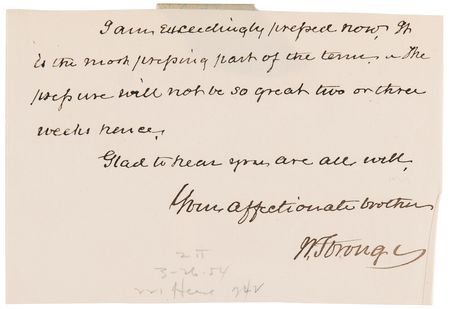 I am exceedingly pressed now. It
is the most pressing part of the term. The
pressure will not be so great two or three
weeks hence.
Glad to hear you are all well.
Your affectionate brother
W. Strong
3-26-54